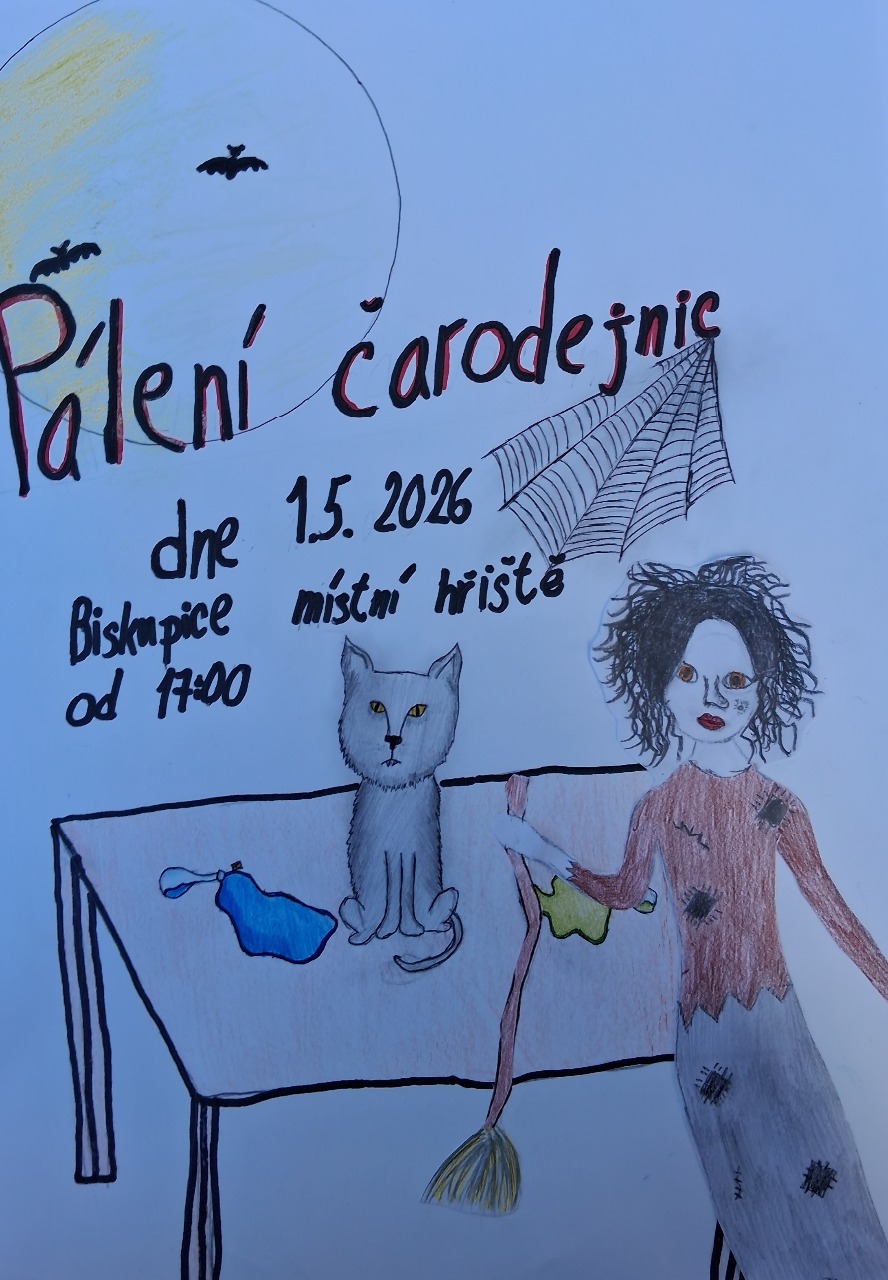 Pálení čarodejnic
dne 1.5. 2026
Biskupice místní hřiště
od 17:00